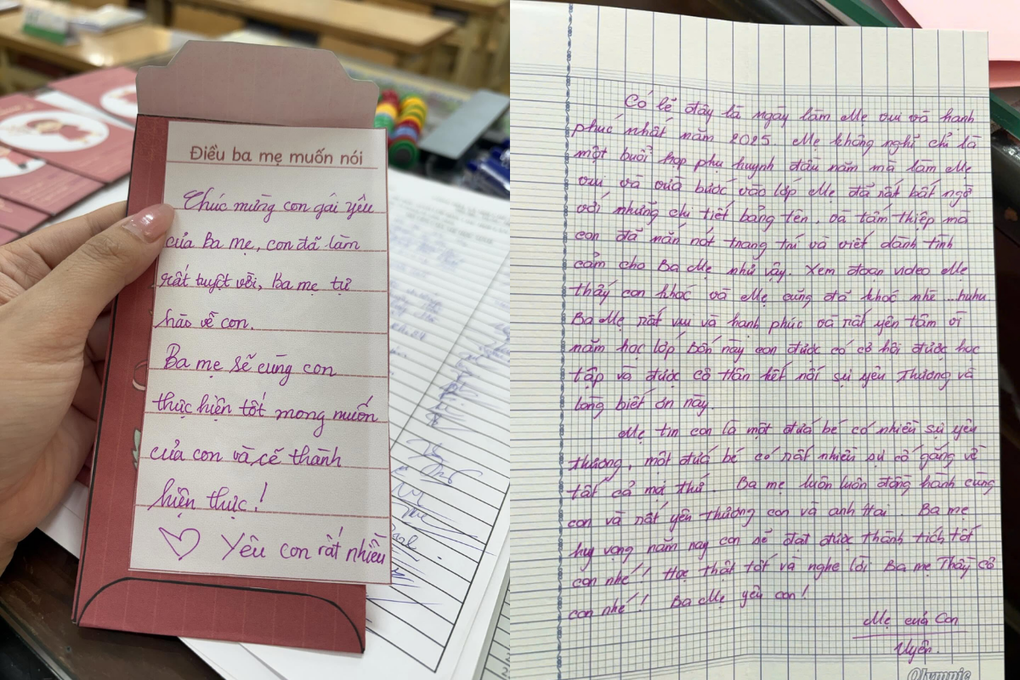 Điều ba mẹ muốn nói
Chúc mừng con gái yêu
của Ba mẹ, con đã làm
rất tuyệt vời, Ba mẹ tự
hào về con.
Ba mẹ sẽ cùng con
thực hiện tốt mong muốn
của con và sẽ thành
hiện thực!
Yêu con rất nhiều
Có lẽ đây là ngày làm Mẹ vui và hạnh
phúc nhất năm 2025. Mẹ không nghĩ chỉ là
một buổi họp phụ huynh đầu năm mà làm Mẹ
vui và vừa bước vào lớp Mẹ đã rất bất ngờ
với những chi tiết bảng tên, và tấm thiệp mà
con đã nắn nót trang trí và viết dành tình
cảm cho Ba Mẹ như vậy. Xem đoạn video Mẹ
thấy con khóc và Mẹ cũng đã khóc nhè...huhu
Ba Mẹ rất vui và hạnh phúc và rất yên tâm vì
năm học lớp bốn này con được có cơ hội được học
tập và được cô Hân kết nối sự yêu thương và
lòng biết ơn này.
Mẹ tin con là một đứa bé có nhiều sự yêu
thương, một đứa bé có rất nhiều sự cố gắng về
tất cả mọi thứ. Ba mẹ luôn luôn đồng hành cùng
con và rất yêu thương con và anh Hai. Ba mẹ
hy vọng năm nay con sẽ đạt được thành tích tốt
con nhé! Học thật tốt và nghe lời Ba mẹ Thầy cô
con nhé! Ba Mẹ yêu con!
Mẹ của Con
Uyên.
Olympic